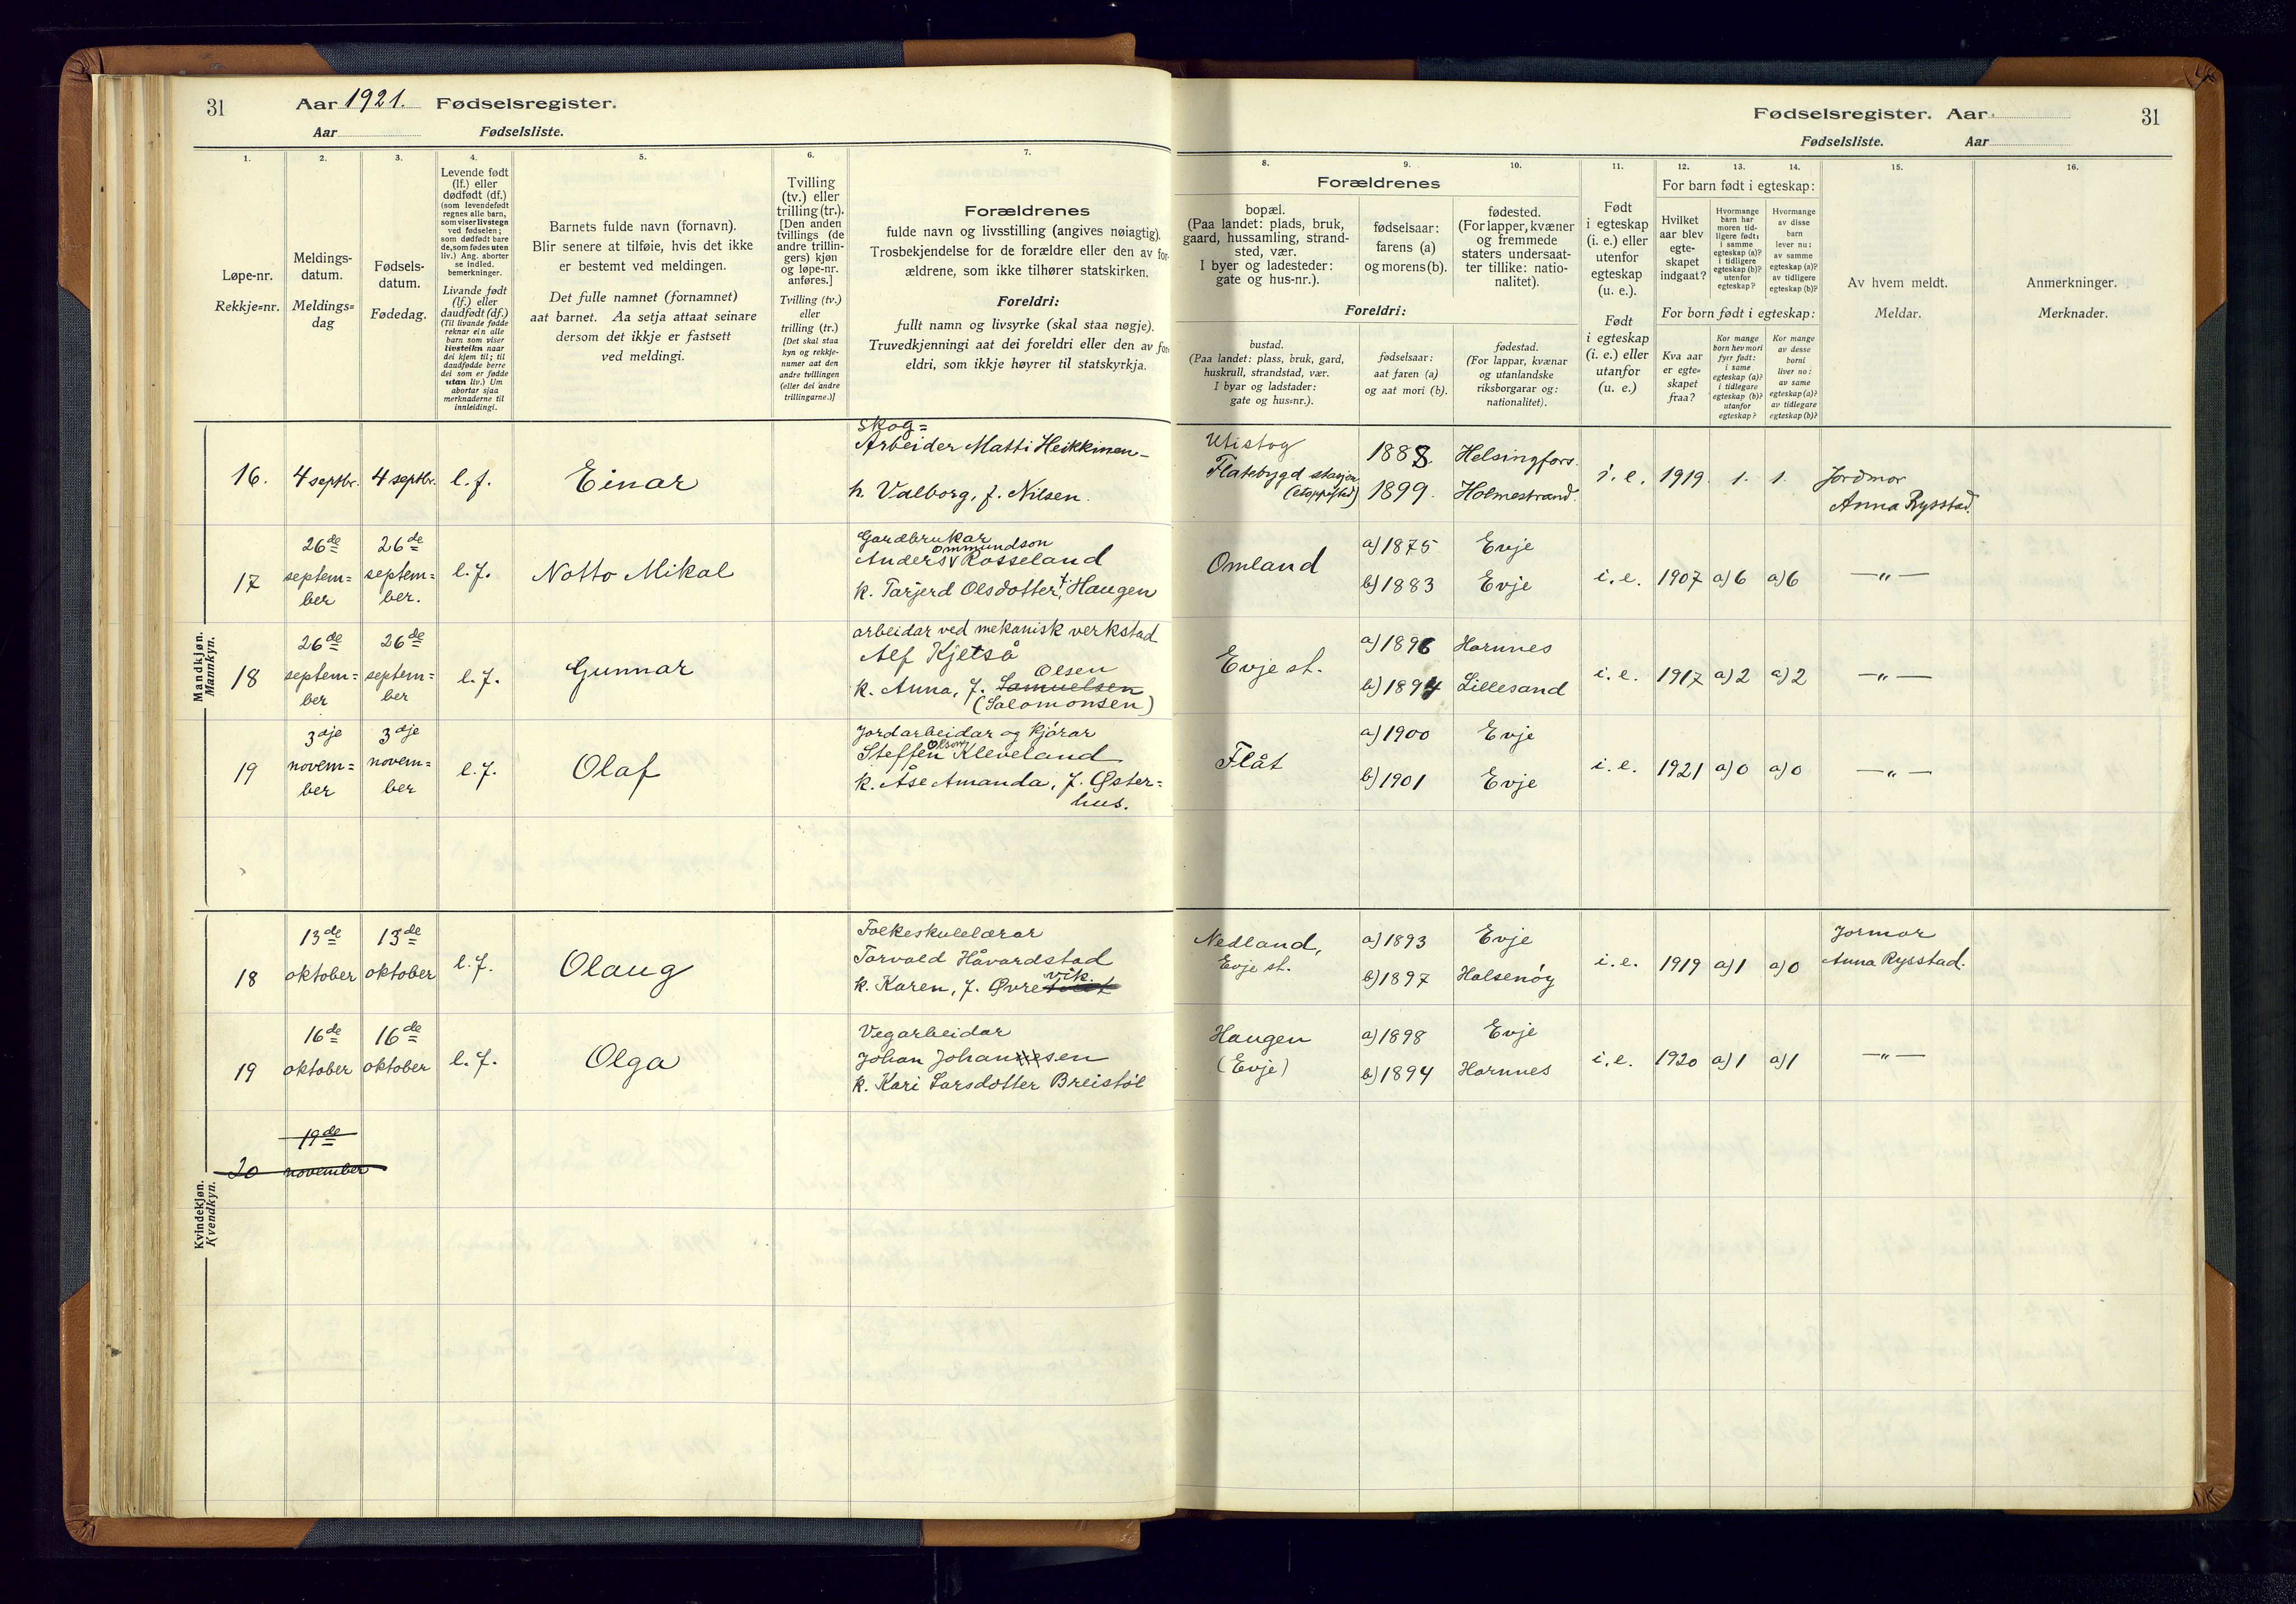 31 Aar 1921. Fødselsregister.
Aar Fødselsliste.
1. 2. 3. 4. 5. 6. 7.
Løpe-nr.
Rekkje=nr.
Meldings-
datum.
Meldings=
dag
Fødsels-
datum.
Fødedag.
Levende født
(lf.) eller
dødfødt (df.)
(som levendefødt
regnes alle barn,
som viser livstegn
ved fødselen;
som dødfødt bare
de, som fødes uten
liv.) Ang. aborter
se indled.
bemerkninger.
Livande født
(lf.) eller
daudfødt (df.)
(Til livande fødde
reknar ein alle
barn som viser
livsteikn naar
dei kjem til; til
daudfødde berre
dei som er fødde
utan liv.) Um
abortar sjaa
merknaderne til
innleidingi.
Barnets fulde navn (fornavn).
Blir senere at tilføie, hvis det ikke
er bestemt ved meldingen.
Det fulle namnet (fornamnet)
aat barnet. Aa setja attaat seinare
dersom det ikkje er fastsett
ved meldingi.
Tvilling
(tv.) eller
trilling (tr.).
[Den anden
tvillings (de
andre trillin-
gers) kjøn
og løpe-nr.
anføres.]
Tvilling (tv.)
eller
trilling (tr.)
[Det skal staa
kyn og rekkje-
numer aat den
andre tvillingen
(eller dei andre
trillingarne.)]
Forældrenes
fulde navn og livsstilling (angives nøiagtig).
Trosbekjendelse for de forældre eller den av for-
ældrene, som ikke tilhører statskirken.
Foreldri:
fullt namn og livsyrke (skal staa nøgje).
Truvedkjenningi aat dei foreldri eller den av for-
eldri, som ikkje høyrer til statskyrkja.
Mandkjøn.
Mannkyn.
16. 4 septbr. 4 septbr. l. f. Einar
Skog=
Arbeider Matti Heikkinen
h. Valborg, f. Nilsen.
17 26de septem= ber 26de septem= ber. l. f. Notto Mikal
Gardbrukar
Ommundson
Anders Rosseland
k. Tarjerd Olsdotter, f. Haugen
18 26de septem= ber 26de septem= ber l. f. Gunnar
arbeidar ved mekanisk verkstad
Alf Kjetså
Olsen
k. Anna, f. Samuelsen
(Salomonsen)
19 3dje novem= ber 3dje novem= ber l. f. Olaf
Jordarbeidar og kjørar
Olson
Steffen Kleveland
k. Åse Amanda, f. Øster=
hus.
18 13de oktober 13de oktober l. f. Olaug
Folkeskulelærar
Torvald Håvardstad
vik.
k. Karen, f. Øvre
19 16de oktober 16de oktober l. f. Olga
Vegarbeidar
Johan Johannesen
k. Kari Larsdotter Breistøl
19de
20 november
Kvindekjøn.
Kvendkyn.
Fødselsregister. Aar 31
Fødselsliste. Aar
8. 9. 10. 11. 12. 13. 14. 15. 16.
Forældrenes
bopæl.
(Paa landet: plads, bruk,
gaard, hussamling, strand-
sted, vær.
I byer og ladesteder:
gate og hus-nr.).
fødselsaar:
farens (a)
og morens (b).
fødested.
(For lapper, kvæner
og fremmede
staters undersaat-
ter tillike: natio-
nalitet).
Foreldri:
bustad.
(Paa landet: plass, bruk, gard,
huskrull, strandstad, vær.
I byar og ladstader:
gate og hus=nr.).
fødselsaar:
aat faren (a)
og aat mori (b).
fødestad.
(For lappar, kvænar
og utanlandske
riksborgarar og:
nationalitet).
Født
i egteskap
(i. e.) eller
utenfor
egteskap
(u. e.).
Født
i egteskap
(i. e.) eller
utanfor
(u. e.)
For barn født i egteskap:
Hvilket
aar blev
egte-
skapet
indgaat?
Hvormange
barn har
moren tid-
ligere født:
i samme
egteskap (a)?
i tidligere
egteskap (b)?
utenfor
egteskap?
Hvormange
av disse
barn
lever nu:
av samme
egteskap (a)?
av tidligere
egteskap (b)?
For born født i egteskap:
Kva aar
er egte=
skapet
fraa?
Kor mange
born hev mori
fyrr født:
i same
egteskap (a)?
i tidlegare
egteskap (b)?
utanfor
egteskap?
Kor mange
av desse
borni
liver no:
av same
egteskap (a)?
av tidlegare
egteskap (b)?
Av hvem meldt.
Meldar.
Anmerkninger.
Merknader.
Utistog
Flatebygd stasjon
(stoppested)
1888. Helsingfors.
1899. Holmestrand.
i. e. 1919. 1. 1. Jordmor
Anna Rysstad.
Omland a) 1875 Evje
b) 1883 Evje
i. e. 1907 a) 6 a) 6 — " —
Evje st. a) 1896 Hornnes
b) 1894 Lillesand
i. e. 1917 a) 2 a) 2 — " —
Flåt a) 1900 Evje
b) 1901 Evje
i. e. 1921 a) 0 a) 0 — " —
Nedland,
Evje st.
a) 1893 Evje
b) 1897 Halsenøy
i. e. 1919 a) 1 a) 0 Jormor
Anna Rysstad.
Haugen
(Evje)
a) 1898 Evje
b) 1894 Hornnes
i. e. 1920 a) 1 a) 1 — " —